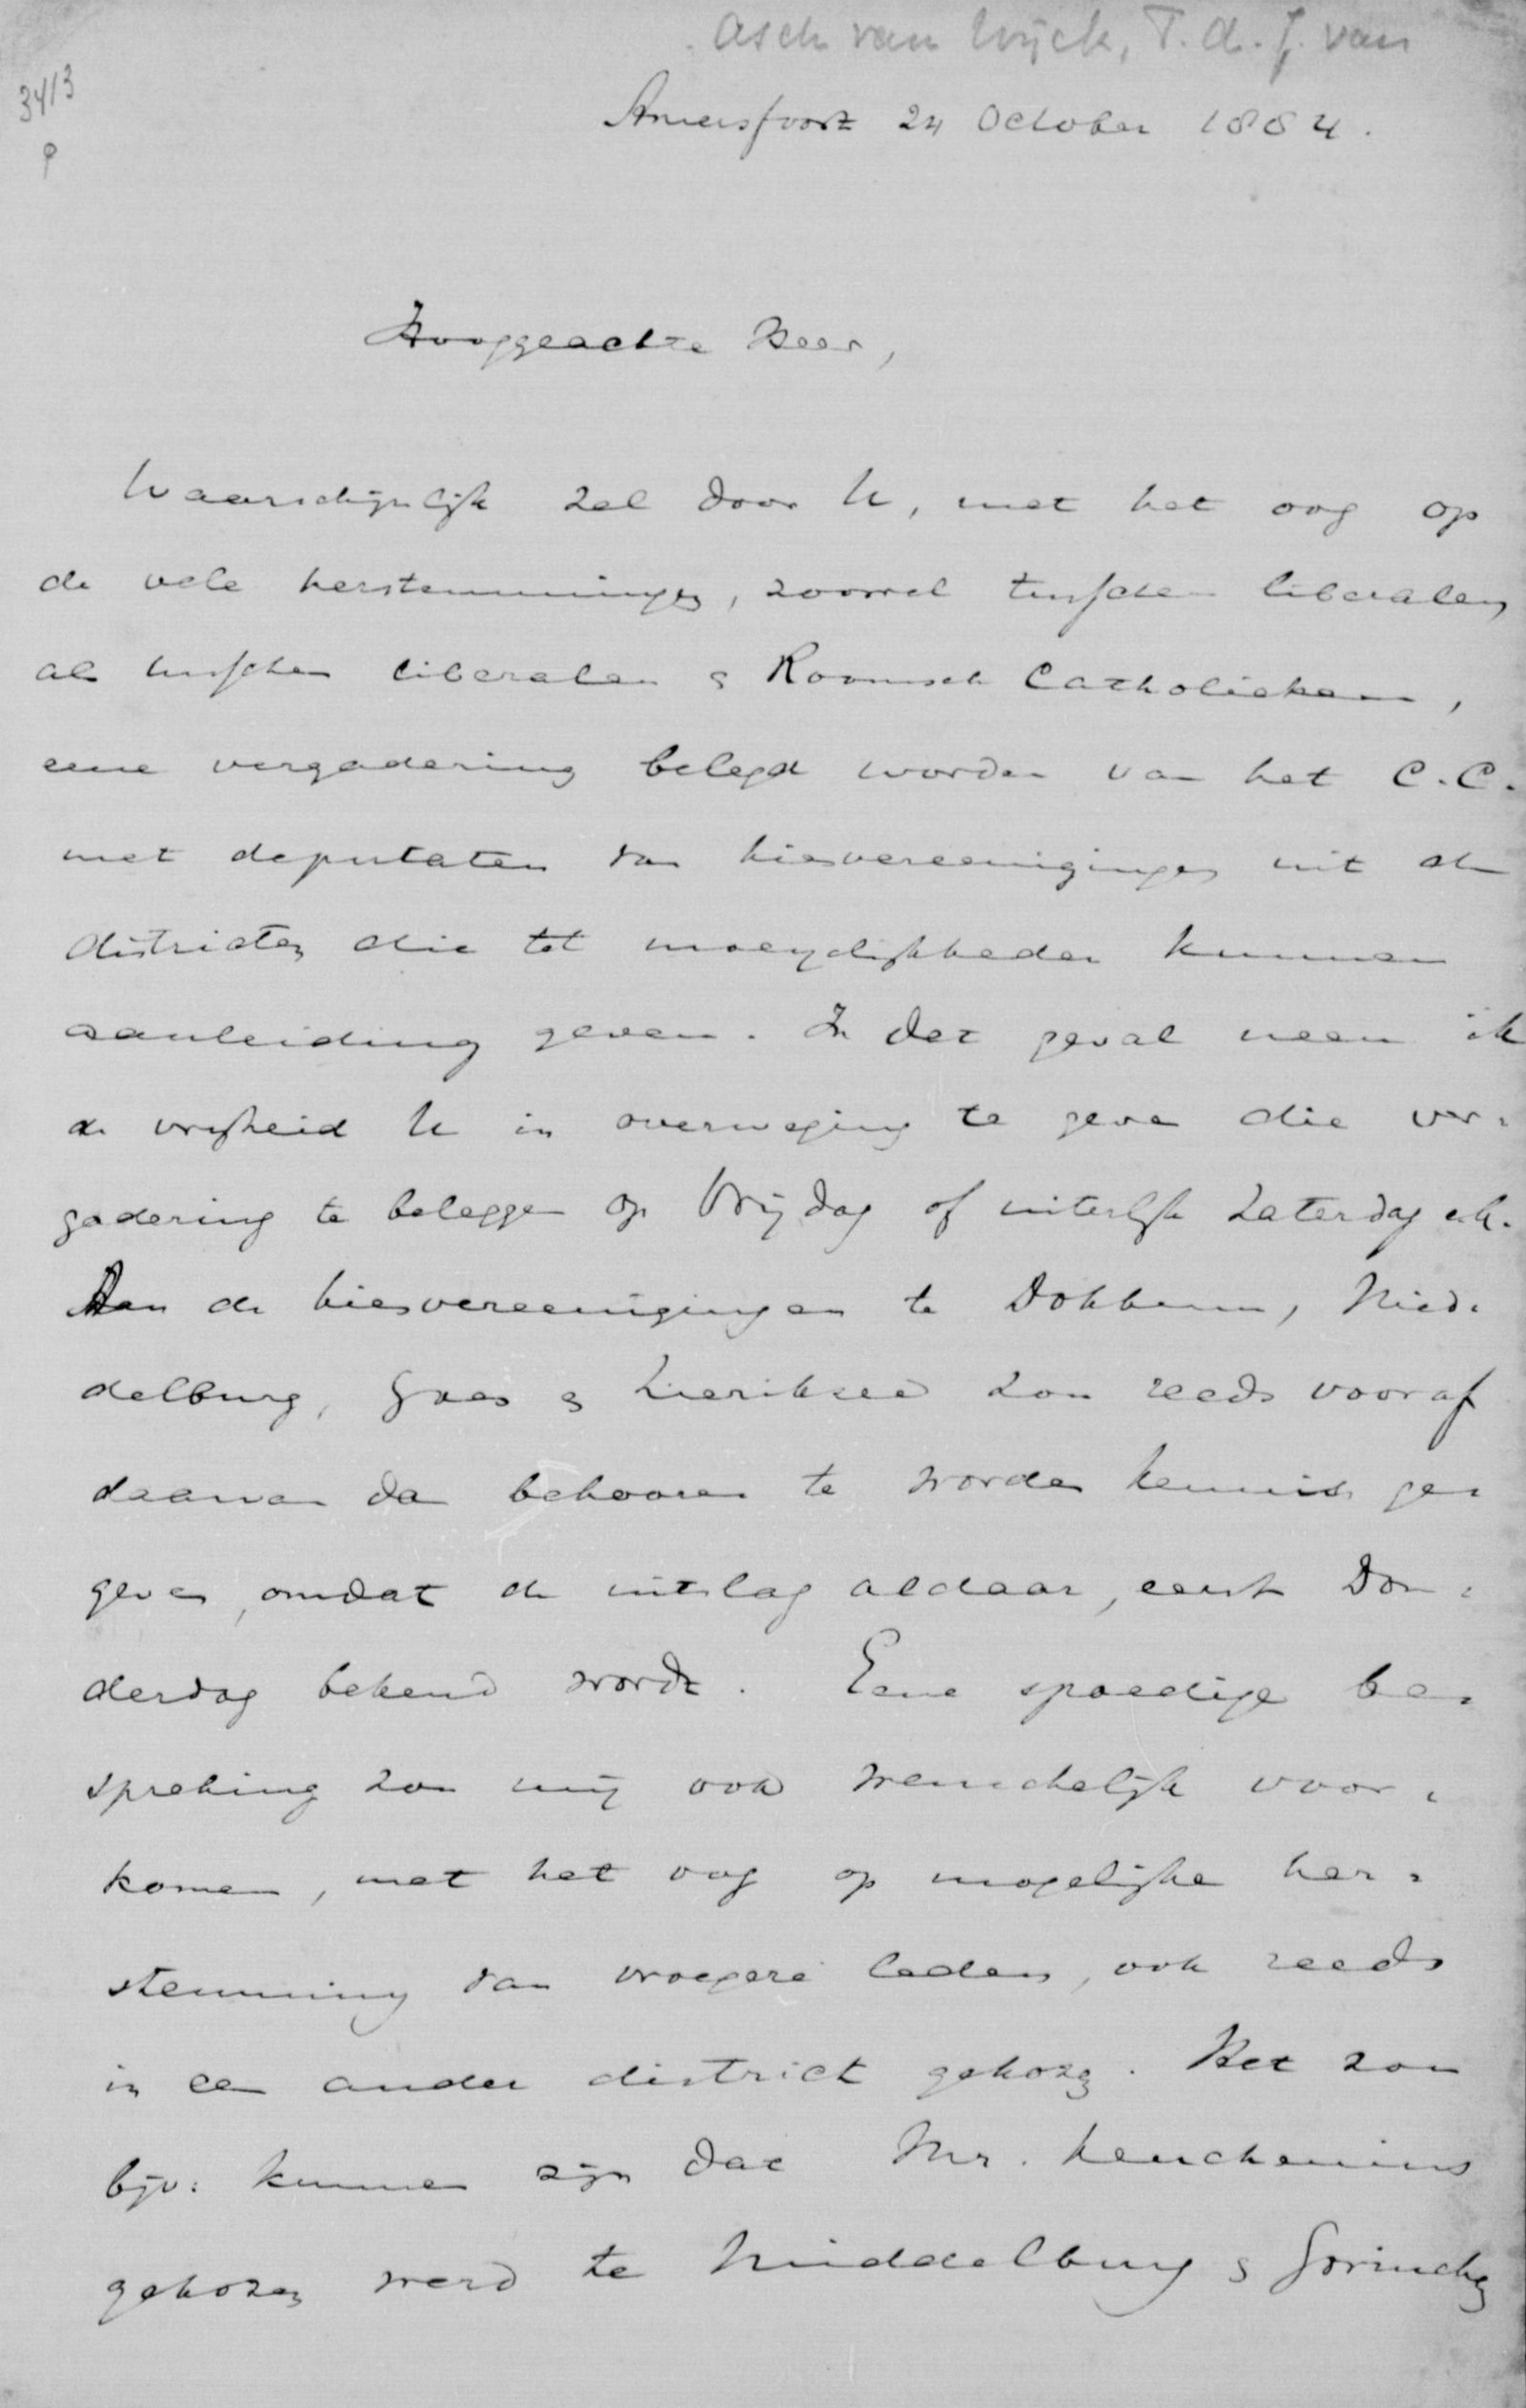 Asch van Wijck, T. A. J. van
3413
P
Amersfoort 24 October 1884.
Hooggeachte Heer,
Waarschijnlijk zal door U, met het oog op
de vele herstemmingen, zoowel tusschen liberalen
als tusschen liberalen & Roomsch Catholieken,
eene vergadering belegd worden van het C.C.
met deputaten van kiesvereenigingen uit de
districten die tot moeyelijkheden kunnen
aanleiding geven. In dat geval neem ik
de vrijheid U in overweging te geven die ver-
gadering te beleggen op Vrijdag of uiterlijk Zaterdag e.k.
Aan de kiesvereenigingen te Dokkum, Mid-
delburg, Goes & Zierikzee zou reeds vooraf
daarvan dan behooren te worden kennis ge-
geven, omdat de uitslag aldaar, eerst Don-
derdag bekend wordt. Eene spoedige be-
spreking zou mij ook wenschelijk voor-
komen, met het oog op mogelijke her-
stemming van vroegere leden, ook reeds
in een ander district gekozen. Het zou
bijv: kunnen zijn dat Mr. Keuchenius
gekozen werd te Middelburg & Gorinchem